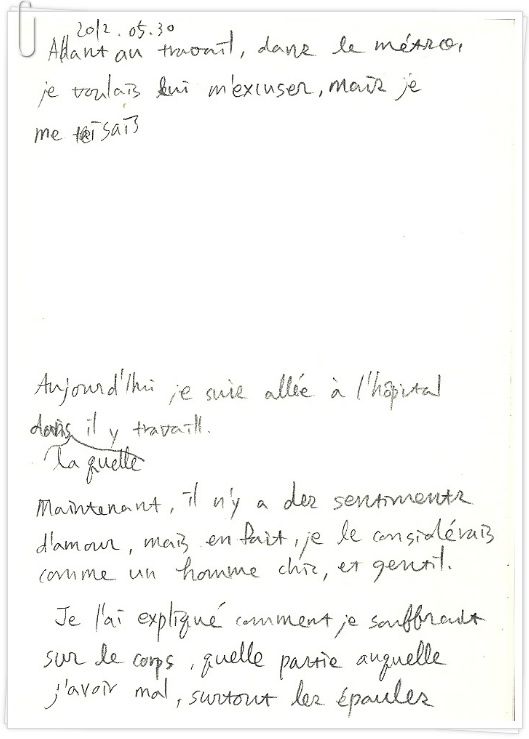 2012.05.30
Allant au travail, dans le métro,
je voulais lui m'excuser, mais je
me taisais
Aujourd'hui je suis allée à l'hôpital
dans il y travaill.
laquelle
Maintenant, il n'y a des sentiments
d'amour, mais en fait, je le considérais
comme un homme chic, et gentil.
Je l'ai expliqué comment je souffrait
sur le corps, quelle partie auquelle
j'avoir mal, surtout les épaules